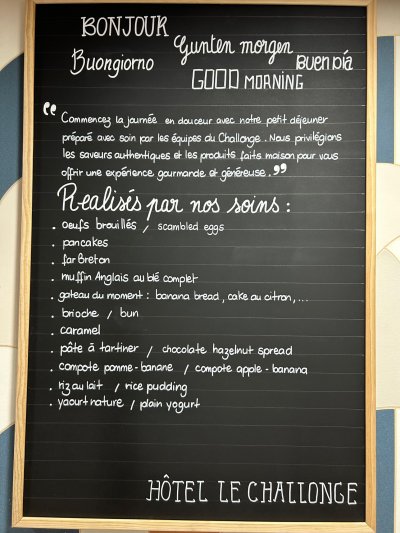 BONJOUR
Gunten morgen
Buongiorno
BUEN DÍA
GOOD MORNING
“ Commencez la journée en douceur avec notre petit déjeuner
préparé avec soin par les équipes du Challonge. Nous privilégions
les saveurs authentiques et les produits faits maison pour vous
offrir une expérience gourmande et généreuse. ”
Réalisés par nos soins :
. oeufs brouillés / scambled eggs
. pancakes
. far Breton
. muffin Anglais au blé complet
. gateau du moment : banana bread, cake au citron, ...
. brioche / bun
. caramel
. pâte à tartiner / chocolate hazelnut spread
. compote pomme-banane / compote apple-banana
. riz au lait / rice pudding
. yaourt nature / plain yogurt
HÔTEL LE CHALLONGE